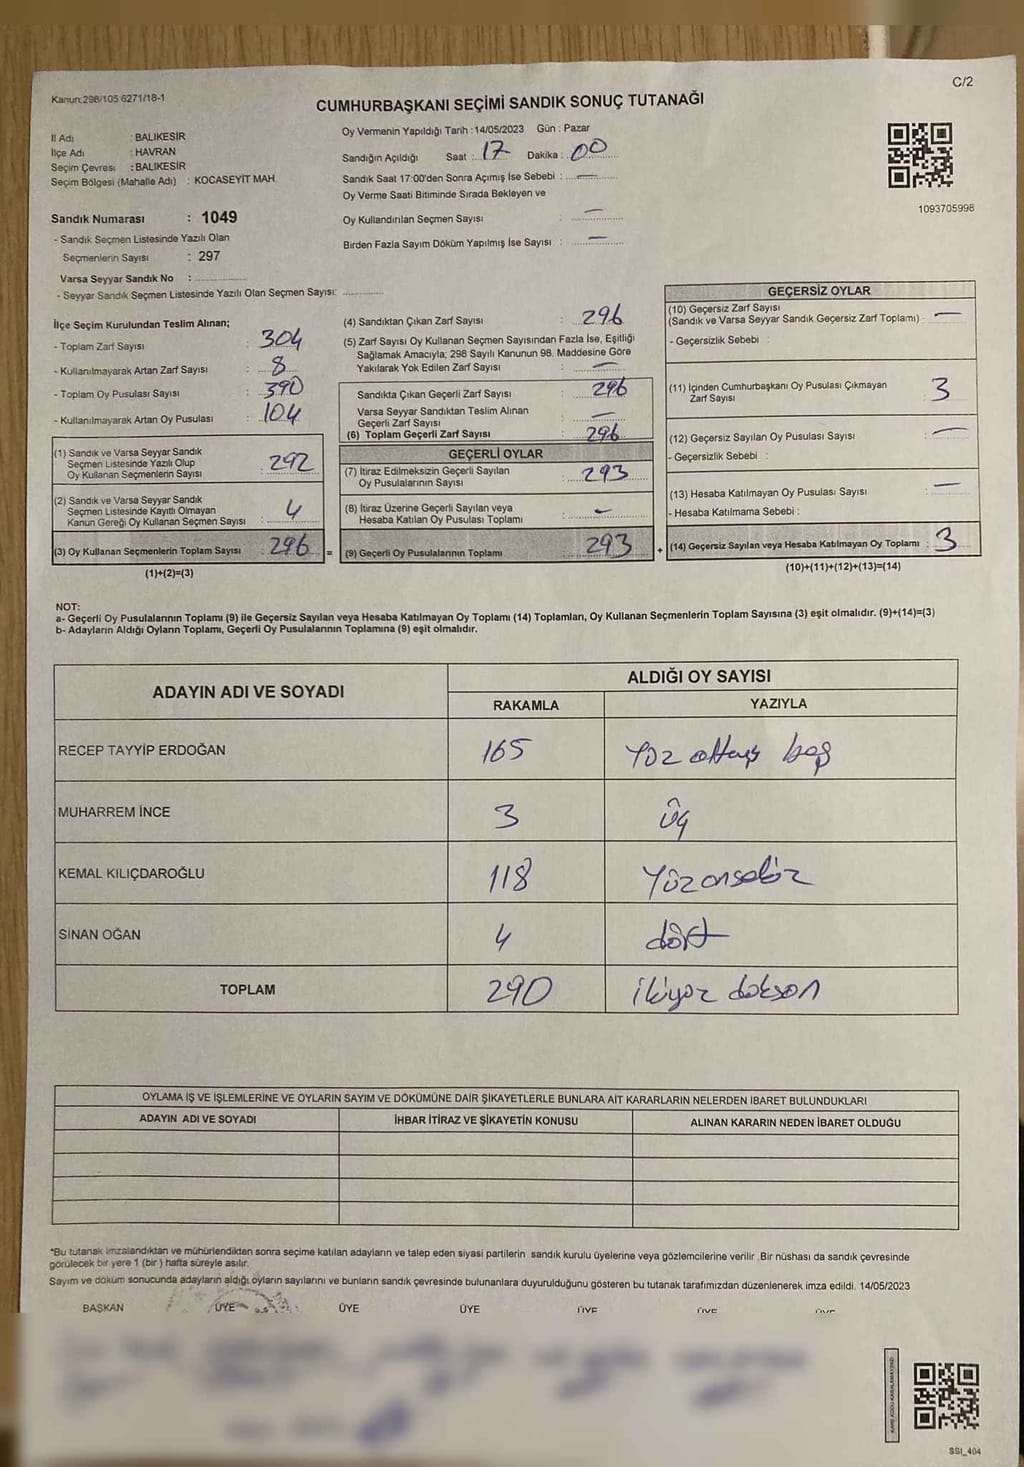 Kanun:298/105 6271/18-1
C/2
CUMHURBAŞKANI SEÇİMİ SANDIK SONUÇ TUTANAĞI
İl Adı : BALIKESİR
İlçe Adı : HAVRAN
Seçim Çevresi : BALIKESİR
Seçim Bölgesi (Mahalle Adı) : KOCASEYİT MAH.
Sandık Numarası : 1049
- Sandık Seçmen Listesinde Yazılı Olan
Seçmenlerin Sayısı : 297
Varsa Seyyar Sandık No :
- Seyyar Sandık Seçmen Listesinde Yazılı Olan Seçmen Sayısı:
Oy Vermenin Yapıldığı Tarih : 14/05/2023 Gün : Pazar
Sandığın Açıldığı Saat : 17 Dakika : 00
Sandık Saat 17:00'den Sonra Açımış İse Sebebi : —
Oy Verme Saati Bitiminde Sırada Bekleyen ve
Oy Kullandırılan Seçmen Sayısı : —
Birden Fazla Sayım Döküm Yapılmış İse Sayısı : —
1093705998
İlçe Seçim Kurulundan Teslim Alınan;
- Toplam Zarf Sayısı : 304
- Kullanılmayarak Artan Zarf Sayısı : 8
- Toplam Oy Pusulası Sayısı : 390
- Kullanılmayarak Artan Oy Pusulası : 104
(1) Sandık ve Varsa Seyyar Sandık
Seçmen Listesinde Yazılı Olup
Oy Kullanan Seçmenlerin Sayısı : 292
(2) Sandık ve Varsa Seyyar Sandık
Seçmen Listesinde Kayıtlı Olmayan
Kanun Gereği Oy Kullanan Seçmen Sayısı : 4
(3) Oy Kullanan Seçmenlerin Toplam Sayısı : 296 =
(1)+(2)=(3)
(4) Sandıktan Çıkan Zarf Sayısı : 296
(5) Zarf Sayısı Oy Kullanan Seçmen Sayısından Fazla İse, Eşitliği
Sağlamak Amacıyla; 298 Sayılı Kanunun 98. Maddesine Göre
Yakılarak Yok Edilen Zarf Sayısı : —
Sandıkta Çıkan Geçerli Zarf Sayısı : 296
Varsa Seyyar Sandıktan Teslim Alınan
Geçerli Zarf Sayısı : —
(6) Toplam Geçerli Zarf Sayısı : 296
GEÇERLİ OYLAR
(7) İtiraz Edilmeksizin Geçerli Sayılan
Oy Pusulalarının Sayısı : 293
(8) İtiraz Üzerine Geçerli Sayılan veya
Hesaba Katılan Oy Pusulası Toplamı : —
(9) Geçerli Oy Pusulalarının Toplamı : 293 +
GEÇERSİZ OYLAR
(10) Geçersiz Zarf Sayısı
(Sandık ve Varsa Seyyar Sandık Geçersiz Zarf Toplamı) : —
- Geçersizlik Sebebi :
(11) İçinden Cumhurbaşkanı Oy Pusulası Çıkmayan
Zarf Sayısı : 3
(12) Geçersiz Sayılan Oy Pusulası Sayısı : —
- Geçersizlik Sebebi :
(13) Hesaba Katılmayan Oy Pusulası Sayısı : —
- Hesaba Katılmama Sebebi :
(14) Geçersiz Sayılan veya Hesaba Katılmayan Oy Toplamı : 3
(10)+(11)+(12)+(13)=(14)
NOT:
a- Geçerli Oy Pusulalarının Toplamı (9) ile Geçersiz Sayılan veya Hesaba Katılmayan Oy Toplamı (14) Toplamları, Oy Kullanan Seçmenlerin Toplam Sayısına (3) eşit olmalıdır. (9)+(14)=(3)
b- Adayların Aldığı Oyların Toplamı, Geçerli Oy Pusulalarının Toplamına (9) eşit olmalıdır.
ADAYIN ADI VE SOYADI
ALDIĞI OY SAYISI
RAKAMLA YAZIYLA
RECEP TAYYİP ERDOĞAN 165 Yüz altmış beş
MUHARREM İNCE 3 üç
KEMAL KILIÇDAROĞLU 118 Yüzonsekiz
SİNAN OĞAN 4 dört
TOPLAM 290 ikiyüz doksan
OYLAMA İŞ VE İŞLEMLERİNE VE OYLARIN SAYIM VE DÖKÜMÜNE DAİR ŞİKAYETLERLE BUNLARA AİT KARARLARIN NELERDEN İBARET BULUNDUKLARI
ADAYIN ADI VE SOYADI İHBAR İTİRAZ VE ŞİKAYETİN KONUSU ALINAN KARARIN NEDEN İBARET OLDUĞU
*Bu tutanak imzalandıktan ve mühürlendikten sonra seçime katılan adayların ve talep eden siyasi partilerin sandık kurulu üyelerine veya gözlemcilerine verilir. Bir nüshası da sandık çevresinde
görülecek bir yere 1 (bir) hafta süreyle asılır.
Sayım ve döküm sonucunda adayların aldığı oyların sayılarını ve bunların sandık çevresinde bulunanlara duyurulduğunu gösteren bu tutanak tarafımızdan düzenlenerek imza edildi. 14/05/2023
BAŞKAN ÜYE ÜYE ÜYE ÜYE ÜYE ÜYE
SSI_404